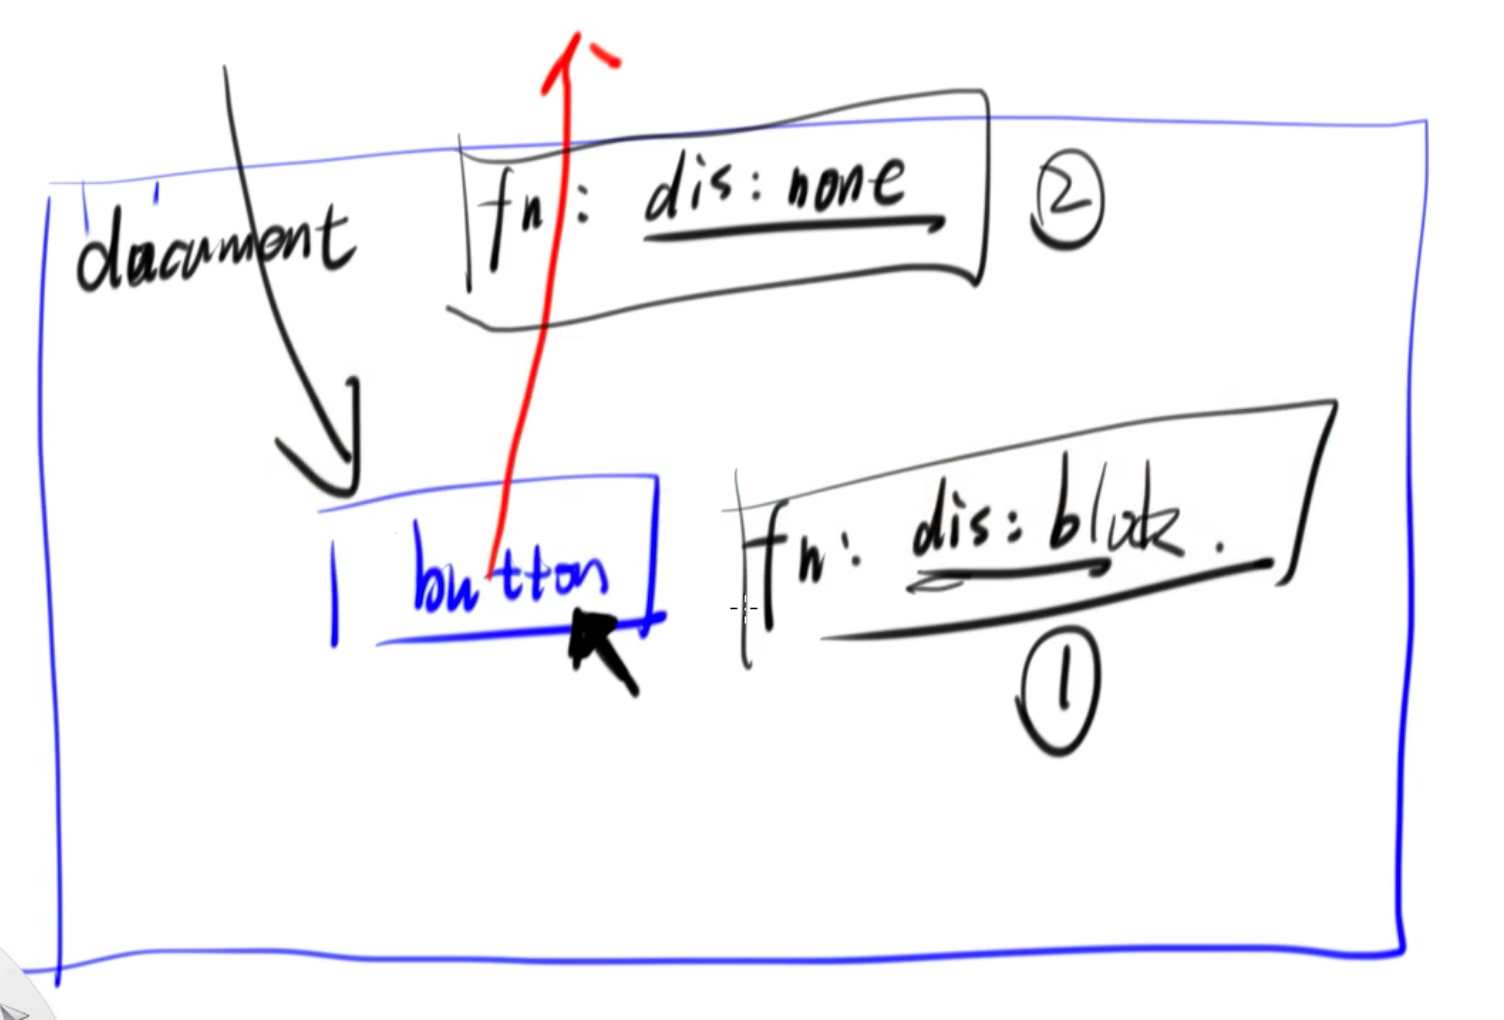 document
fn: dis: none ②
button
fn: dis: block.
①